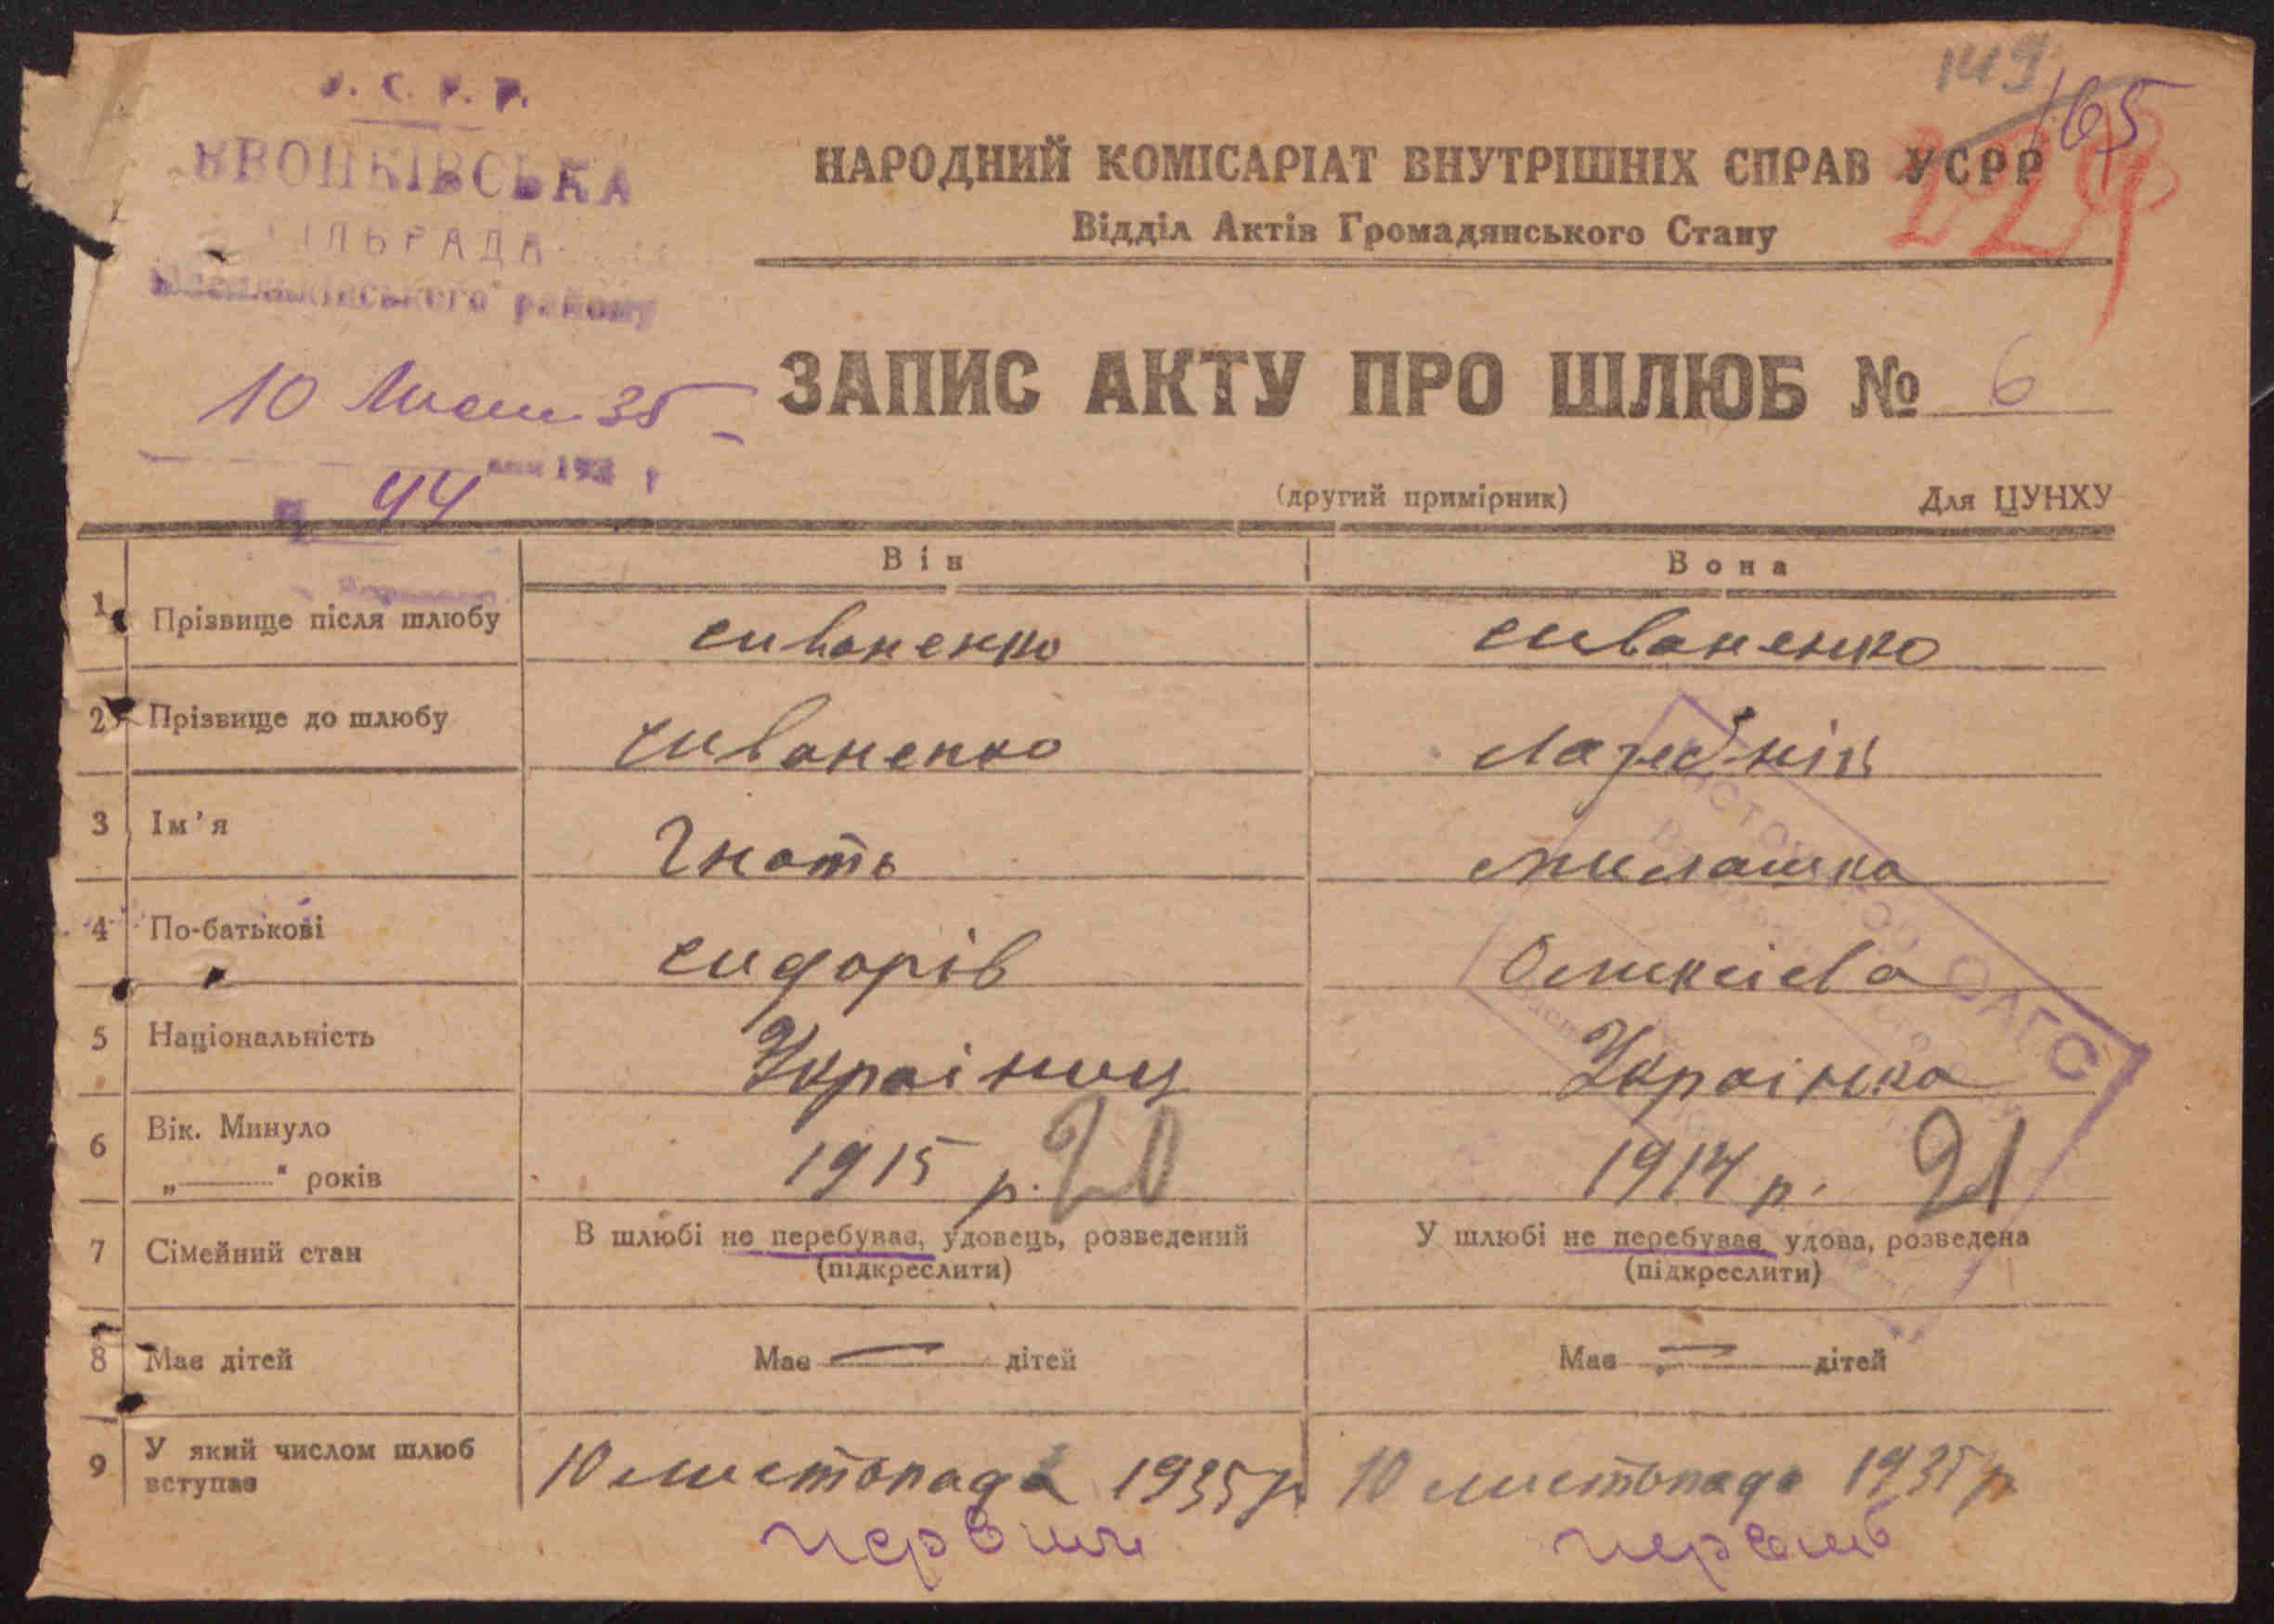 У. С. Р. Р.
КВОНКІВСЬКА
СІЛЬРАДА
району
10 Лист 35
193 р
№ 44
149
165
НАРОДНИЙ КОМІСАРІАТ ВНУТРІШНІХ СПРАВ УСРР
Відділ Актів Громадянського Стану
ЗАПИС АКТУ ПРО ШЛЮБ № 6
(другий примірник) Для ЦУНХУ
Він Вона
1 Прізвище після шлюбу Сиваненко Сиваненко
2 Прізвище до шлюбу Сиваненко
3 Ім'я Гнать Милашка
4 По-батькові Сидорів Оликсієва
5 Національність Украінец Украінка
6 Вік. Минуло „——" років 1915 р. 20 1914 р. 21
7 Сімейний стан В шлюбі не перебуває, удовець, розведений У шлюбі не перебуває, удова, розведена
(підкреслити) (підкреслити)
8 Має дітей Має — дітей Має — дітей
9 У який числом шлюб вступає 10 листопада 1935 р 10 листопада 1935 р
ОАГС